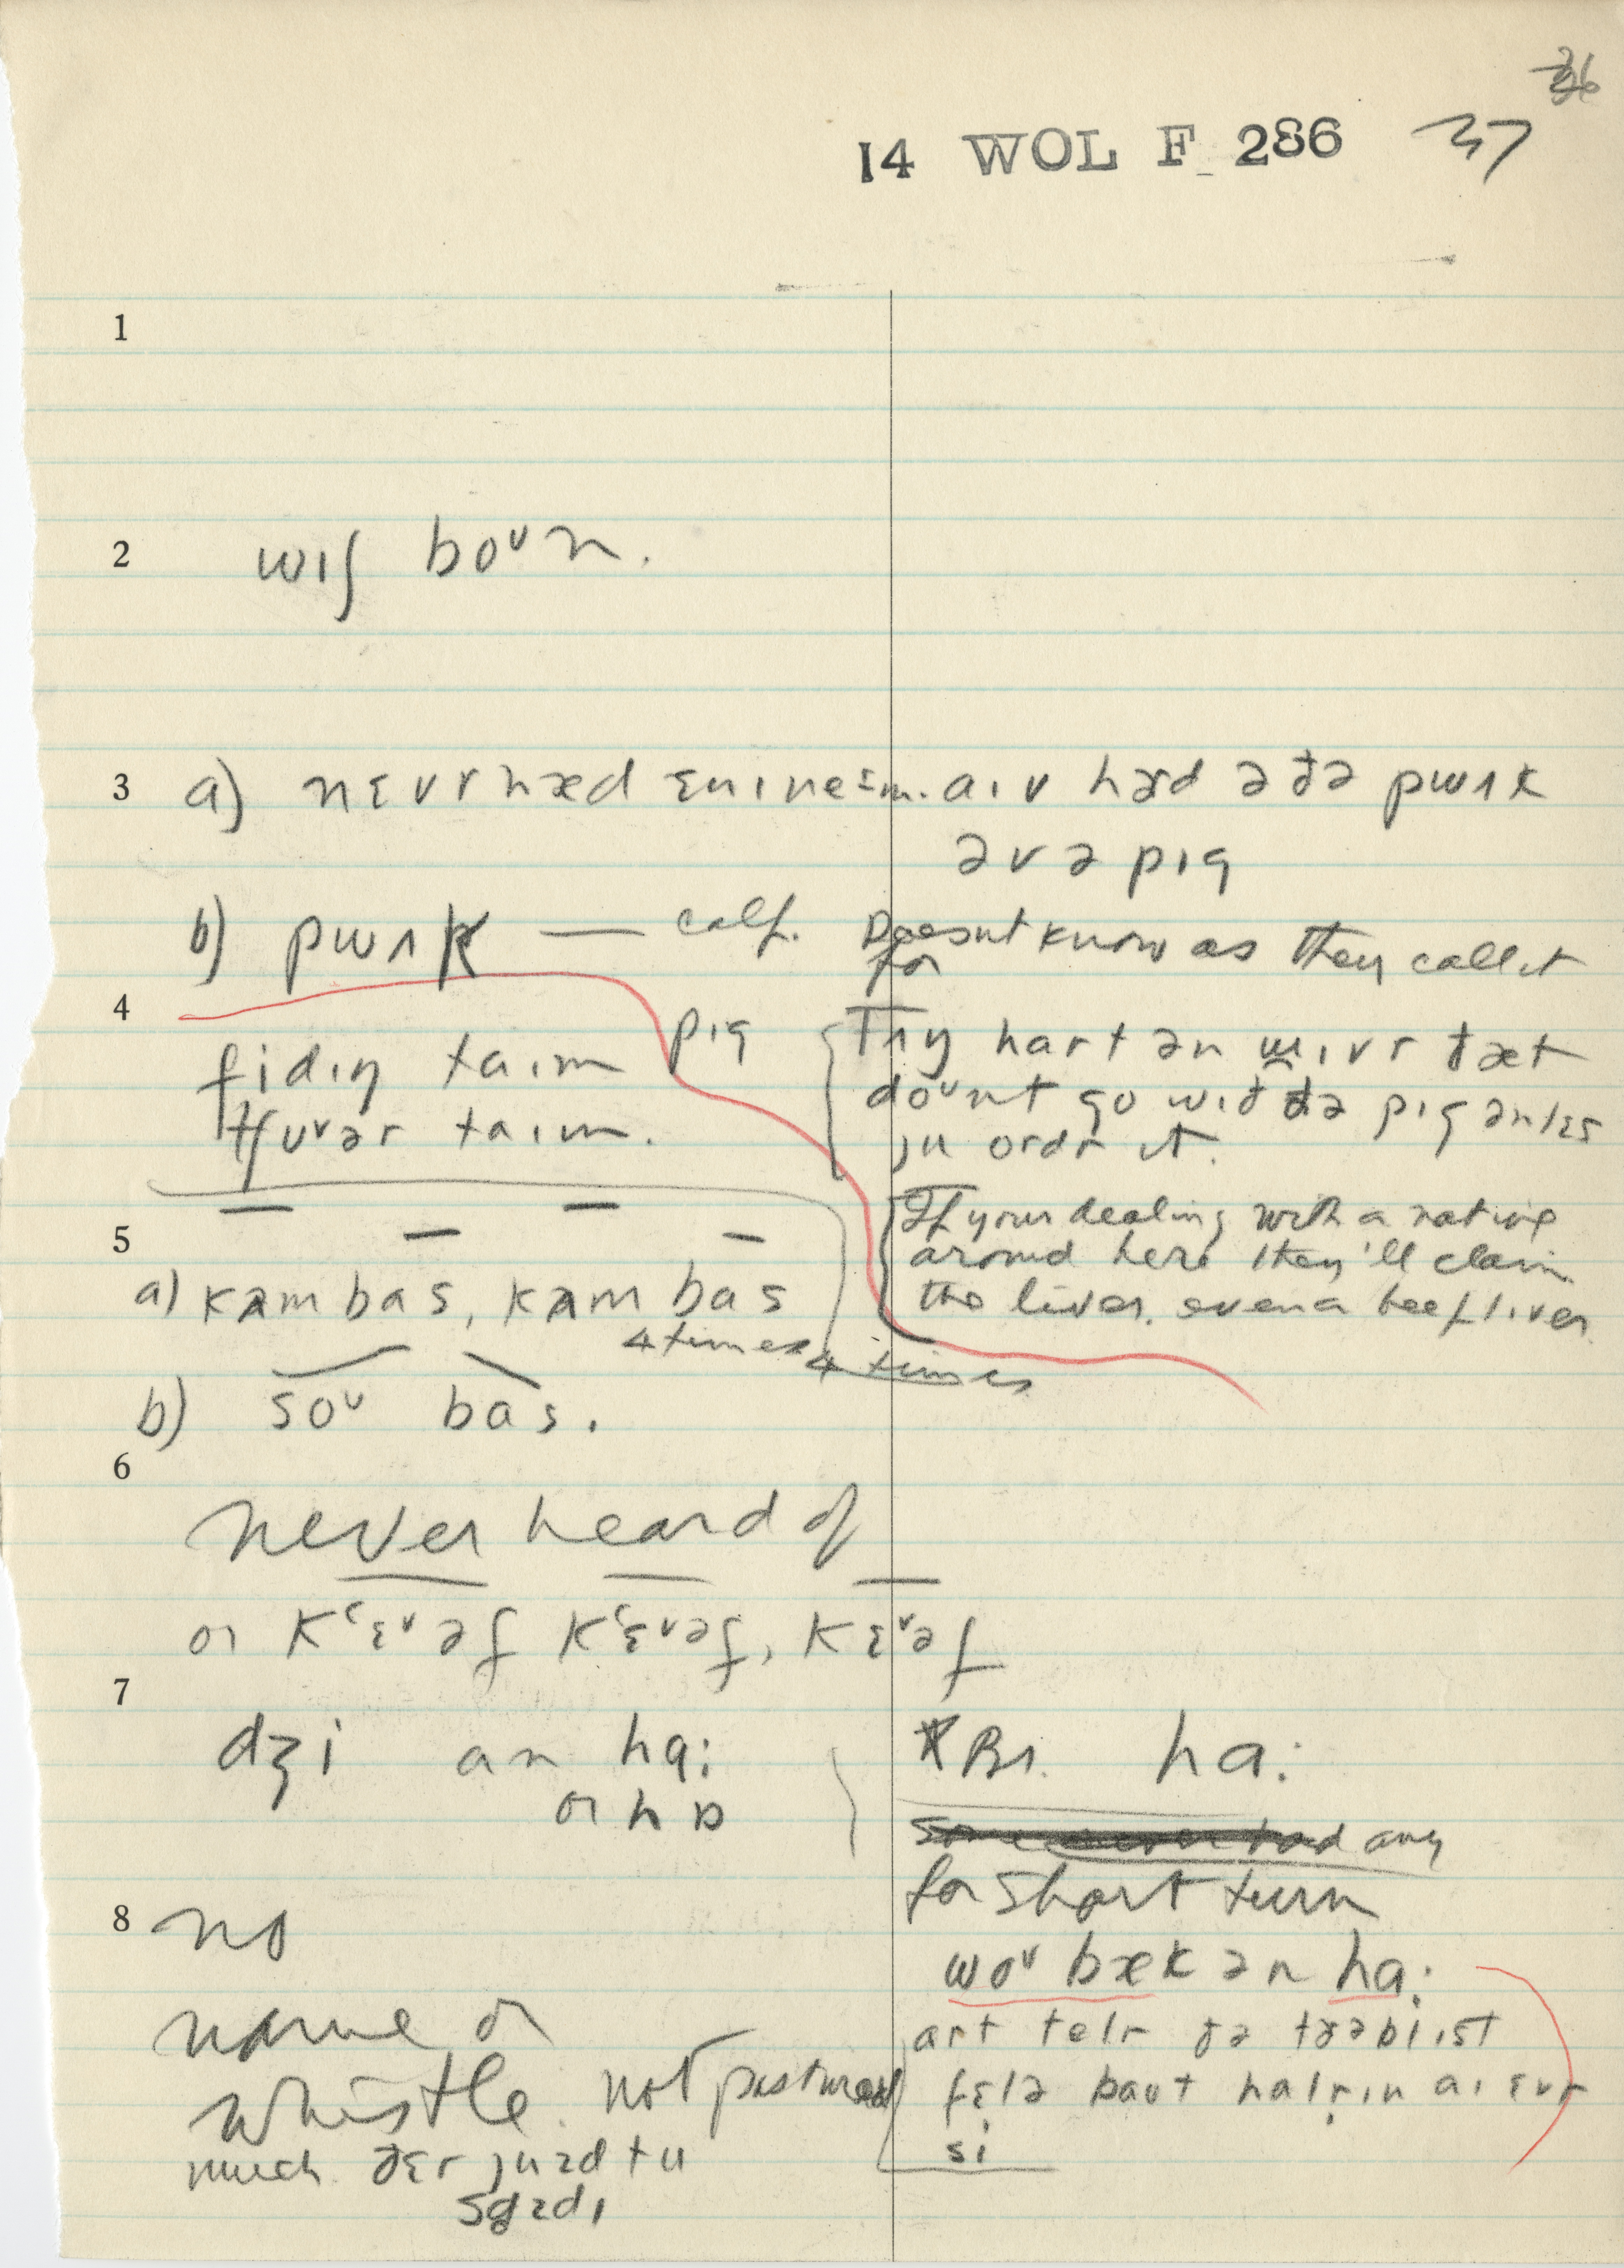 36
14 WOL F 286 37
1
2 wɪʃ boᵘn.
3 a) nɛvr hæd ɛnɪ neɪm. aɪv hɜd ə ðə pwʌk
əv ə pɪg
b) pwʌk — calf. Doesnt know as they call it
for
4
fidɪŋ taɪm pɪg
tʃuᵛər taɪm.
Try hart ən lɪvr ðæt
doᵘnt go wɪð ðə pɪg ənlɛs
ju ordr it.
If your dealing with a native
around here they'll claim
the liver. even a beef liver
5
a) kʌm bas, kʌm bas
4 times 4 times
b) soᵘ bas.
6
never heard of
or kʽɛᵛəf kʽɛᵛəf, kɛᵛəf
7
dʒi an hɑ:
or hɒ
* Br. ha:
any
for short turn
8 no
woᵘ bæk ən hɑ:
name or
whistle. not pastured
much. ðɛr juzd tu
art telr ðə
fɛlə baut halrɪn aɪ ɛvr
si